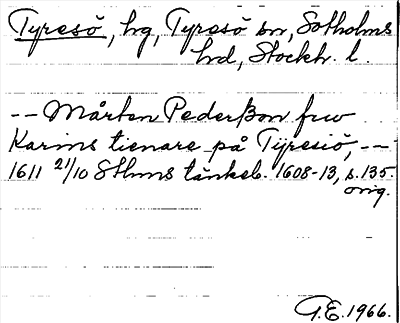 Tyresö, hg, Tyresö sn, Sotholms
hrd, Stockh. l.
-- Mårten Pederßon frw
Karins tienare på Tÿresiö, --
1611 21/10 Sthms tänkeb. 1608-13, s. 135.
orig.
G.E. 1966.